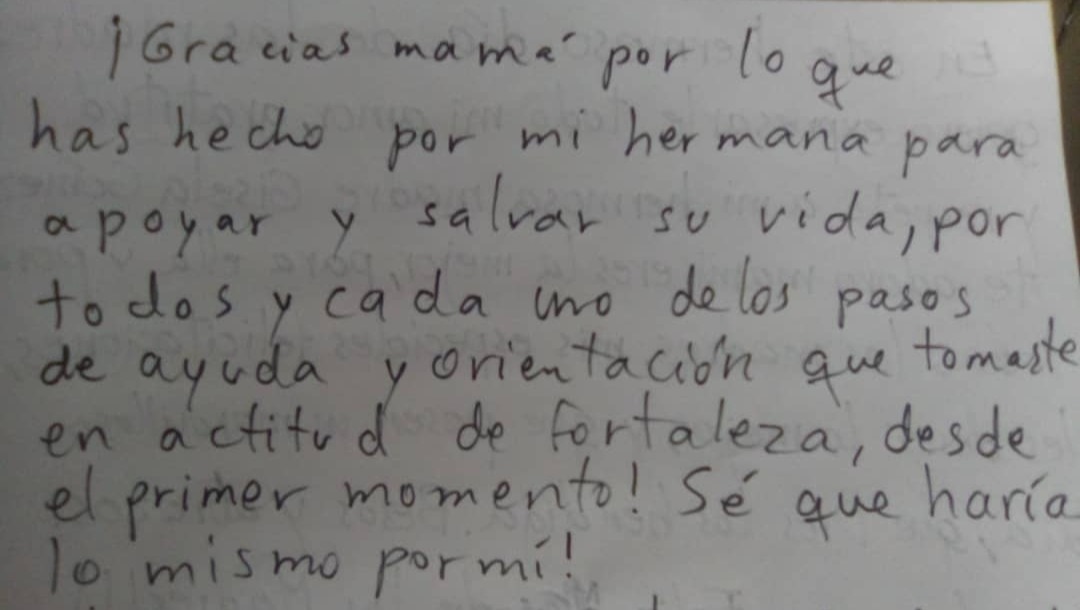 ¡Gracias mamá por lo que
has hecho por mi hermana para
apoyar y salvar su vida, por
todos y cada uno de los pasos
de ayuda y orientación que tomaste
en actitud de fortaleza, desde
el primer momento! Sé que haría
lo mismo por mí!